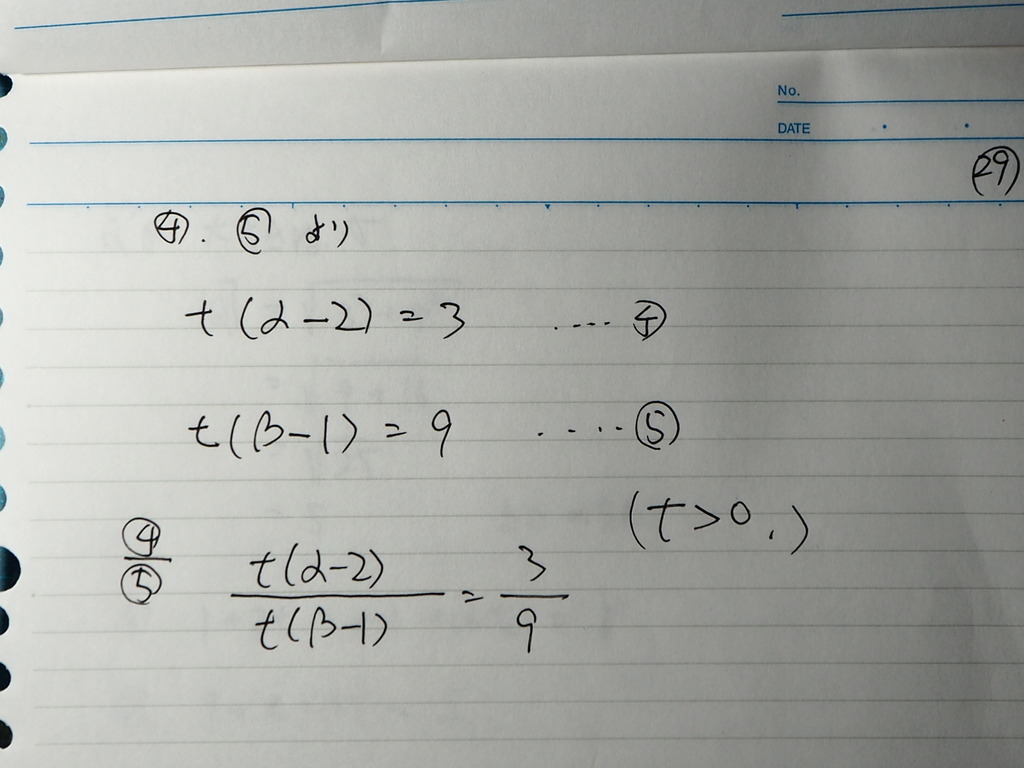 No.
DATE
㉙
④. ⑤ より
t(α-2) = 3 ....④
t(β-1) = 9 ....⑤
(t>0.)
④/⑤ t(α-2)/t(β-1) = 3/9